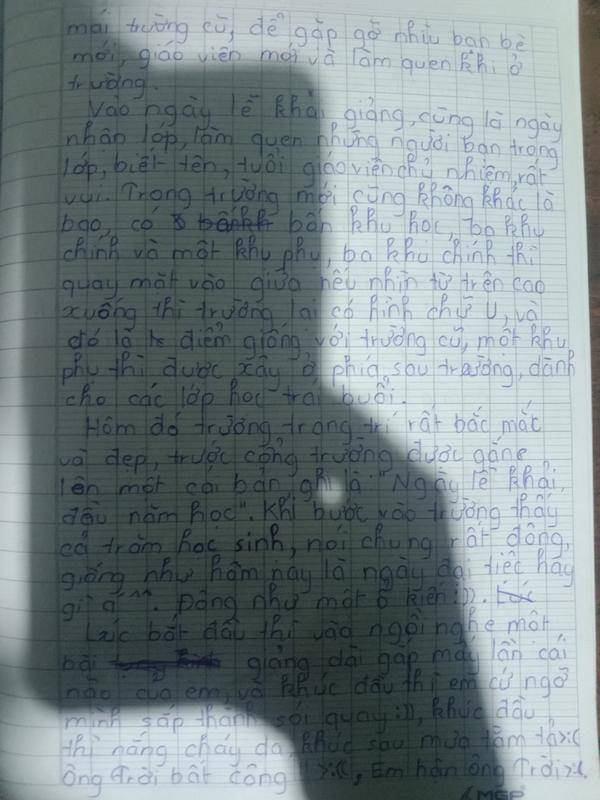 mái trường cũ, để gặp gỡ nhìu bạn bè
mới, giáo viên mới và làm quen khi ở
trường.
Vào ngày lễ khải giảng, cũng là ngày
nhận lớp, làm quen những người bạn trong
lớp, biết tên, tuổi giáo viên chủ nhiệm, rất
vui. Trong trường mới cũng không khác là
bao, có bốn khu học, ba khu
chính và một khu phụ, ba khu chính thì
quay mặt vào giữa nếu nhìn từ trên cao
xuống thì trường lại có hình chữ U, và
đó là điểm giống với trường cũ, một khu
phụ thì được xây ở phía sau trường, dành
cho các lớp học trái buổi.
Hôm đó trường trang trí rất bắc mắt
và đẹp, trước cổng trường được gắng
lên một cái bản ghi là "Ngày lễ khải
đầu năm học". Khi bước vào trường thấy
cả trăm học sinh, nói chung rất đông,
giống như hôm nay là ngày đại tiệc hay
gì á^^. Đông như một ổ kiến:)). Lúc
Lúc bắt đầu thì vào ngồi nghe một
bài giảng dài gấp mấy lần cái
não của em, và khúc đầu thì em cứ ngỡ
mình sắp thành sói quay:)), khúc đầu
thì nắng cháy da, khúc sau mưa tầm tả>:((
ông Trời bất công!! >:((, Em hận ông Trời>:((
MGP